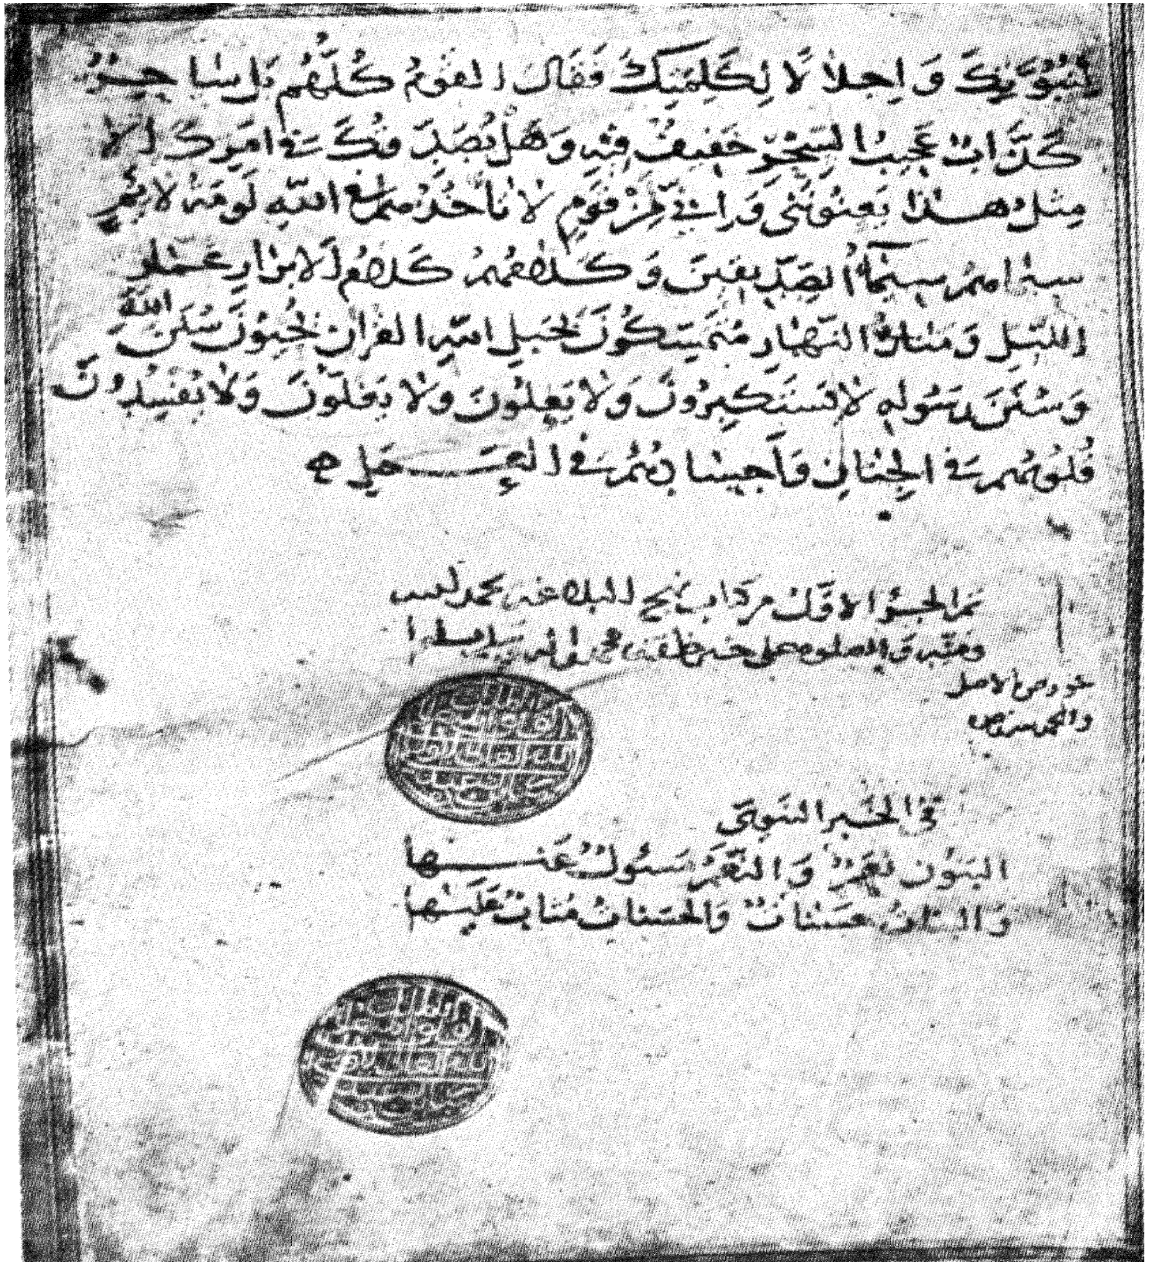 لنبوتك وَاِجلالًا لِكَلِمَتِكَ فَقَالَ القَومُ كُلُّهُم بَل ساحِرٌ
كَذَّابٌ عَجِيبُ السِّحرِ خَفِيفٌ فِيهِ وَهَل يُصَدِّقُكَ فى امرِكَ اِلا
مِثلُ هذا يَعنُونَنى وَاِنى لَمِن قَومٍ لا تَأخُذُهُم فى اللهِ لَومَةُ لائِمٍ
سيماهُم سِيمَاءُ الصِّدِّيقِينَ وَكَلامُهُم كَلامُ الابرارِ عُمّارُ
اللَّيلِ وَمَنَارُ النَّهارِ مُتَمَسِّكُونَ بِحَبلِ اللهِ القُرانِ يُحيُونَ سُنَنَ اللهِ
وَسُنَنَ رَسُولِهِ لا يَستَكبِرُونَ وَلا يَعلُونَ وَلا يَغُلُّونَ وَلا يُفسِدُونَ
قُلُوبُهُم فى الجِنانِ وَاَجسادُهُم فى العَمَلِ
تم الجزؤ الاول من كتاب نهج البلاغه بحمد الله
ومنه والصلوة على خير خلقه محمد واله
عورض الاصل
فى الخبر النبوى
البَنُونَ نِعَمٌ وَالنِّعَمُ مَسئُولٌ عَنها
وَالبَناتُ حَسَناتٌ وَالحَسَناتُ مُثابٌ عَلَيها